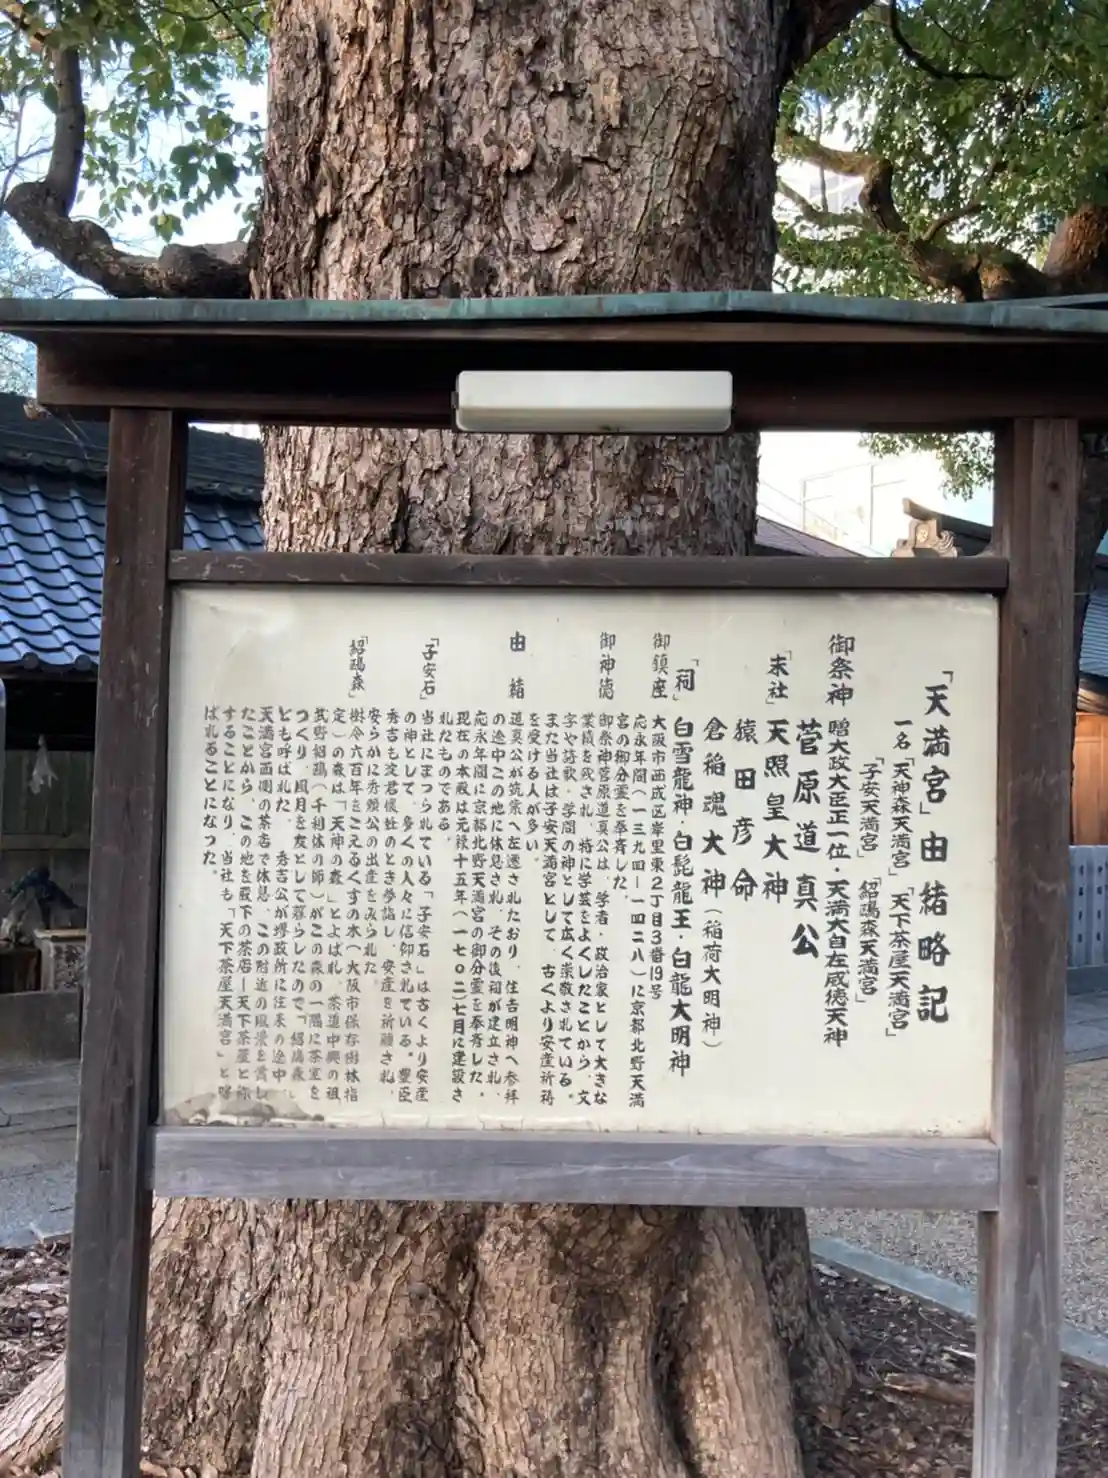 「天満宮」由緒略記
一名「天神森天満宮」「天下茶屋天満宮」
「子安天満宮」「紹鴎森天満宮」
御祭神 贈大政大臣正一位・天満大自在威徳天神
菅原道真公
「末社」天照皇大神
猿田彦命
倉稲魂大神(稲荷大明神)
「祠」白雪龍神・白髭龍王・白龍大明神
御鎮座 大阪市西成区岸里東2丁目3番19号
応永年間(一三九四―一四二八)に京都北野天満
宮の御分霊を奉斉した。
御神徳 御祭神菅原道真公は、学者・政治家として大きな
業績を残され、特に学芸をよくしたことから、文
字や詩歌・学問の神として広く崇敬されている。
また当社は子安天満宮として、古くより安産祈祷
を受ける人が多い。
由緒 道真公が筑紫へ左遷されたおり、住吉明神へ参拝
の途中この地に休息され、その後祠が建立され、
応永年間に京都北野天満宮の御分霊を奉斉した。
現在の本殿は元禄十五年(一七〇二)七月に建設さ
れたものである。
「子安石」当社にまつられている「子安石」は古くより安産
の神として、多くの人々に信仰されている。豊臣
秀吉も淀君懐妊のとき参詣し、安産を祈願され、
安らかに秀頼公の出産をみられた。
「紹鴎森」樹令六百年をこえるくすの木(大阪市保存樹林指
定)の森は「天神の森」とよばれ、茶道中興の祖
武野紹鴎(千利休の師)がこの森の一隅に茶室を
つくり、風月を友として暮らしたので「紹鴎森」
とも呼ばれた。秀吉公が堺政所に往来の途中、
天満宮西側の茶店で休息、この附近の風景を賞し
たことから、この地を殿下の茶店―天下茶屋と称
することになり、当社も「天下茶屋天満宮」と呼
ばれることになった。